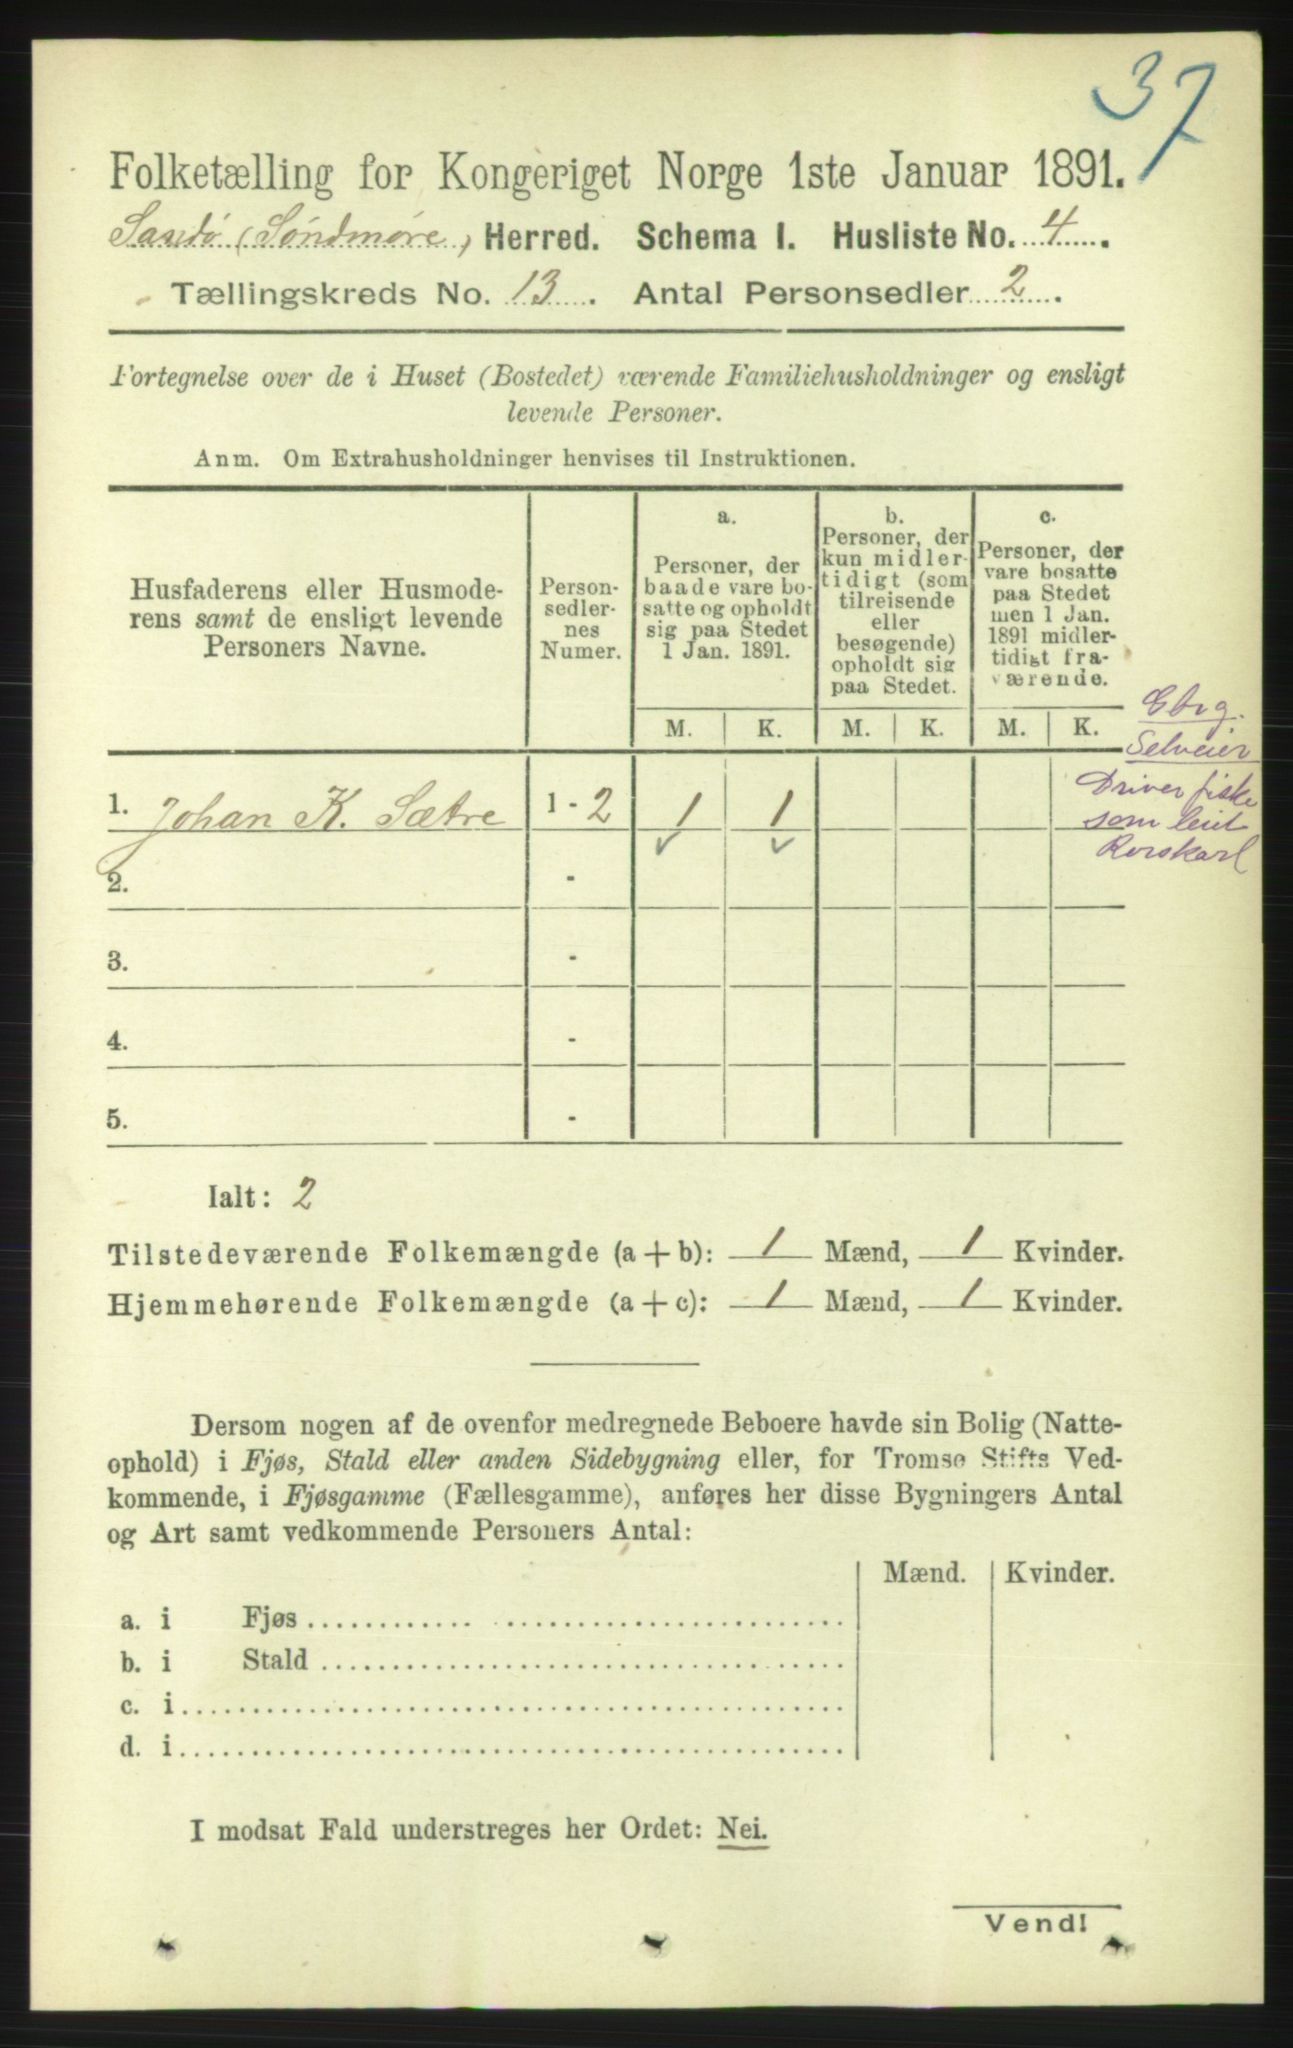 37
Folketælling for Kongeriget Norge 1ste Januar 1891.
Sandø (Söndmöre) Herred. Schema I. Husliste No. 4.
Tællingskreds No. 13. Antal Personsedler 2.
Fortegnelse over de i Huset (Bostedet) værende Familiehusholdninger og ensligt
levende Personer.
Anm. Om Extrahusholdninger henvises til Instruktionen.
Husfaderens eller Husmode-
rens samt de ensligt levende
Personers Navne.
Person-
sedler-
nes
Numer.
a.
Personer, der
baade vare bo-
satte og opholdt
sig paa Stedet
1 Jan. 1891.
b.
Personer, der
kun midler-
tidigt (som
tilreisende
eller
besøgende)
opholdt sig
paa Stedet.
c.
Personer, der
vare bosatte
paa Stedet
men 1 Jan.
1891 midler-
tidigt fra-
værende.
M. K. M. K. M. K.
Selveier
Driver fiske
som leiet
Rorskarl
1. Johan K. Sætre 1 - 2 1 1
2. -
3. -
4. -
5. -
Ialt: 2
Tilstedeværende Folkemængde (a + b): 1 Mænd, 1 Kvinder.
Hjemmehørende Folkemængde (a + c): 1 Mænd, 1 Kvinder.
Dersom nogen af de ovenfor medregnede Beboere havde sin Bolig (Natte-
ophold) i Fjøs, Stald eller anden Sidebygning eller, for Tromsø Stifts Ved-
kommende, i Fjøsgamme (Fællesgamme), anføres her disse Bygningers Antal
og Art samt vedkommende Personers Antal:
Mænd. Kvinder.
a. i Fjøs
b. i Stald
c. i
d. i
I modsat Fald understreges her Ordet: Nei.
Vend!